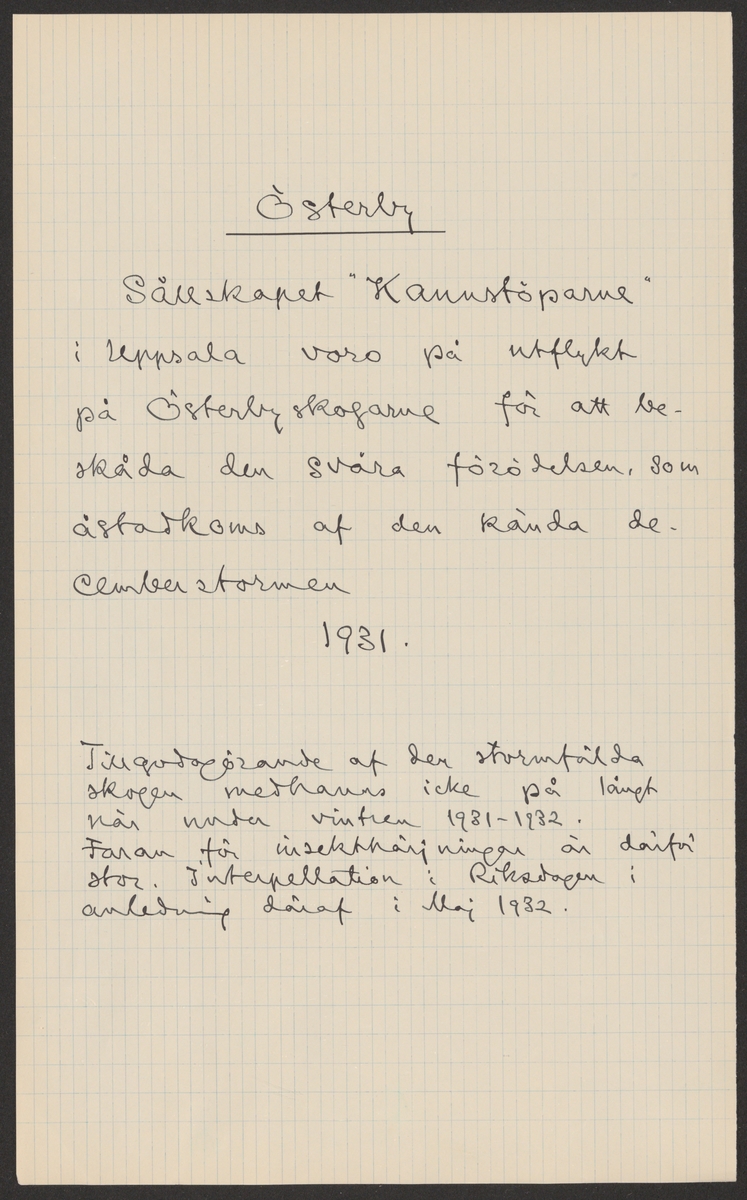 Österby
Sällskapet "Kannstöparne"
i Uppsala voro på utflykt
på Österbyskogarne för att be-
skåda den svåra förödelsen, som
åstadkoms af den kända de-
cemberstormen
1931.
Tillgodogörande af den stormfälda
skogen medhanns icke på långt
när under vintren 1931-1932.
Faran för insekthärjningar är därför
stor. Interpellation i Riksdagen i
anledning däraf i Maj 1932.